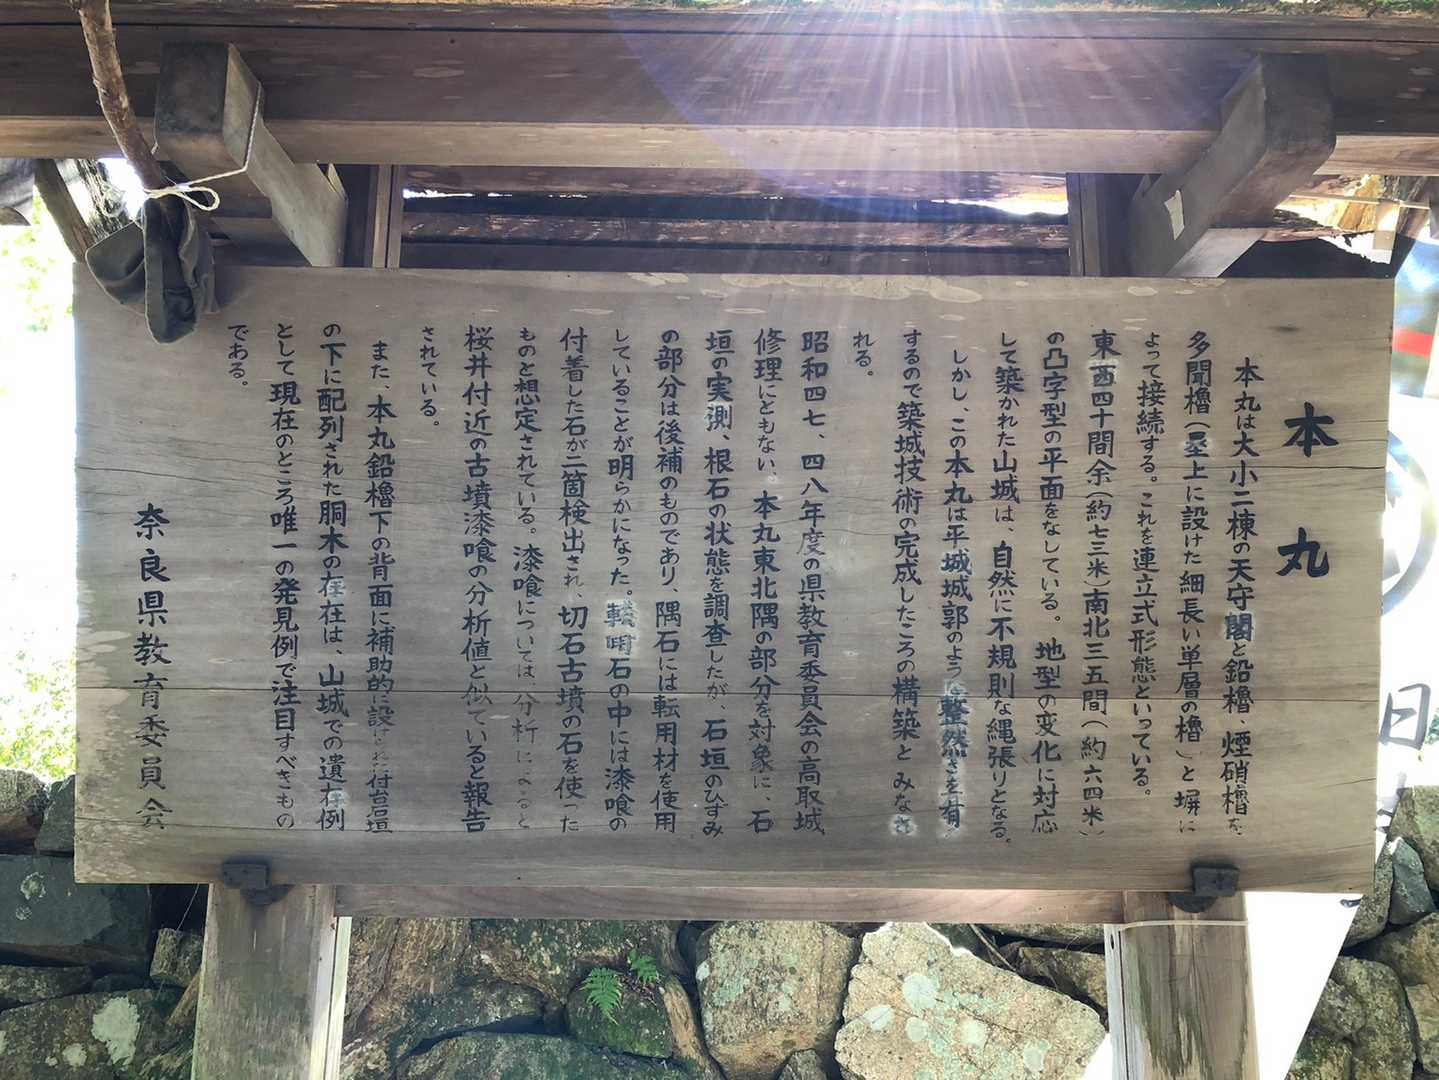 本丸
本丸は大小二棟の天守閣と鉛櫓、煙硝櫓を
多聞櫓(塁上に設けた細長い単層の櫓)と塀に
よって接続する。これを連立式形態といっている。
東西四十間余(約七三米)南北三五間(約六四米)
の凸字型の平面をなしている。地型の変化に対応
して築かれた山城は、自然に不規則な縄張りとなる。
しかし、この本丸は平城城郭のような整然さを有
するので築城技術の完成したころの構築とみなさ
れる。
昭和四七、四八年度の県教育委員会の高取城
修理にともない。本丸東北隅の部分を対象に、石
垣の実測、根石の状態を調査したが、石垣のひずみ
の部分は後補のものであり、隅石には転用材を使用
していることが明らかになった。転用石の中には漆喰の
付着した石が二箇検出され、切石古墳の石を使った
ものと想定されている。漆喰については、分析によると
桜井付近の古墳漆喰の分析値と似ていると報告
されている。
また、本丸鉛櫓下の背面に補助的に設けられた付台壇
の下に配列された胴木の存在は、山城での遺存例
として現在のところ唯一の発見例で注目すべきもの
である。
奈良県教育委員会
日